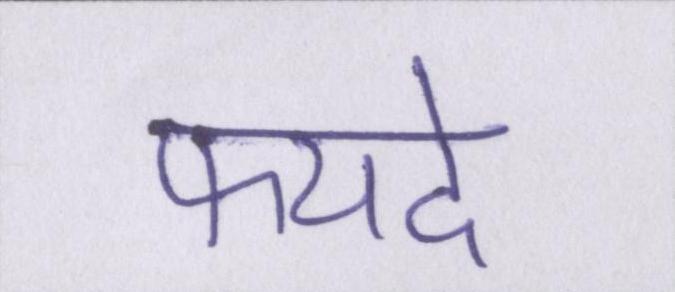 फयदे